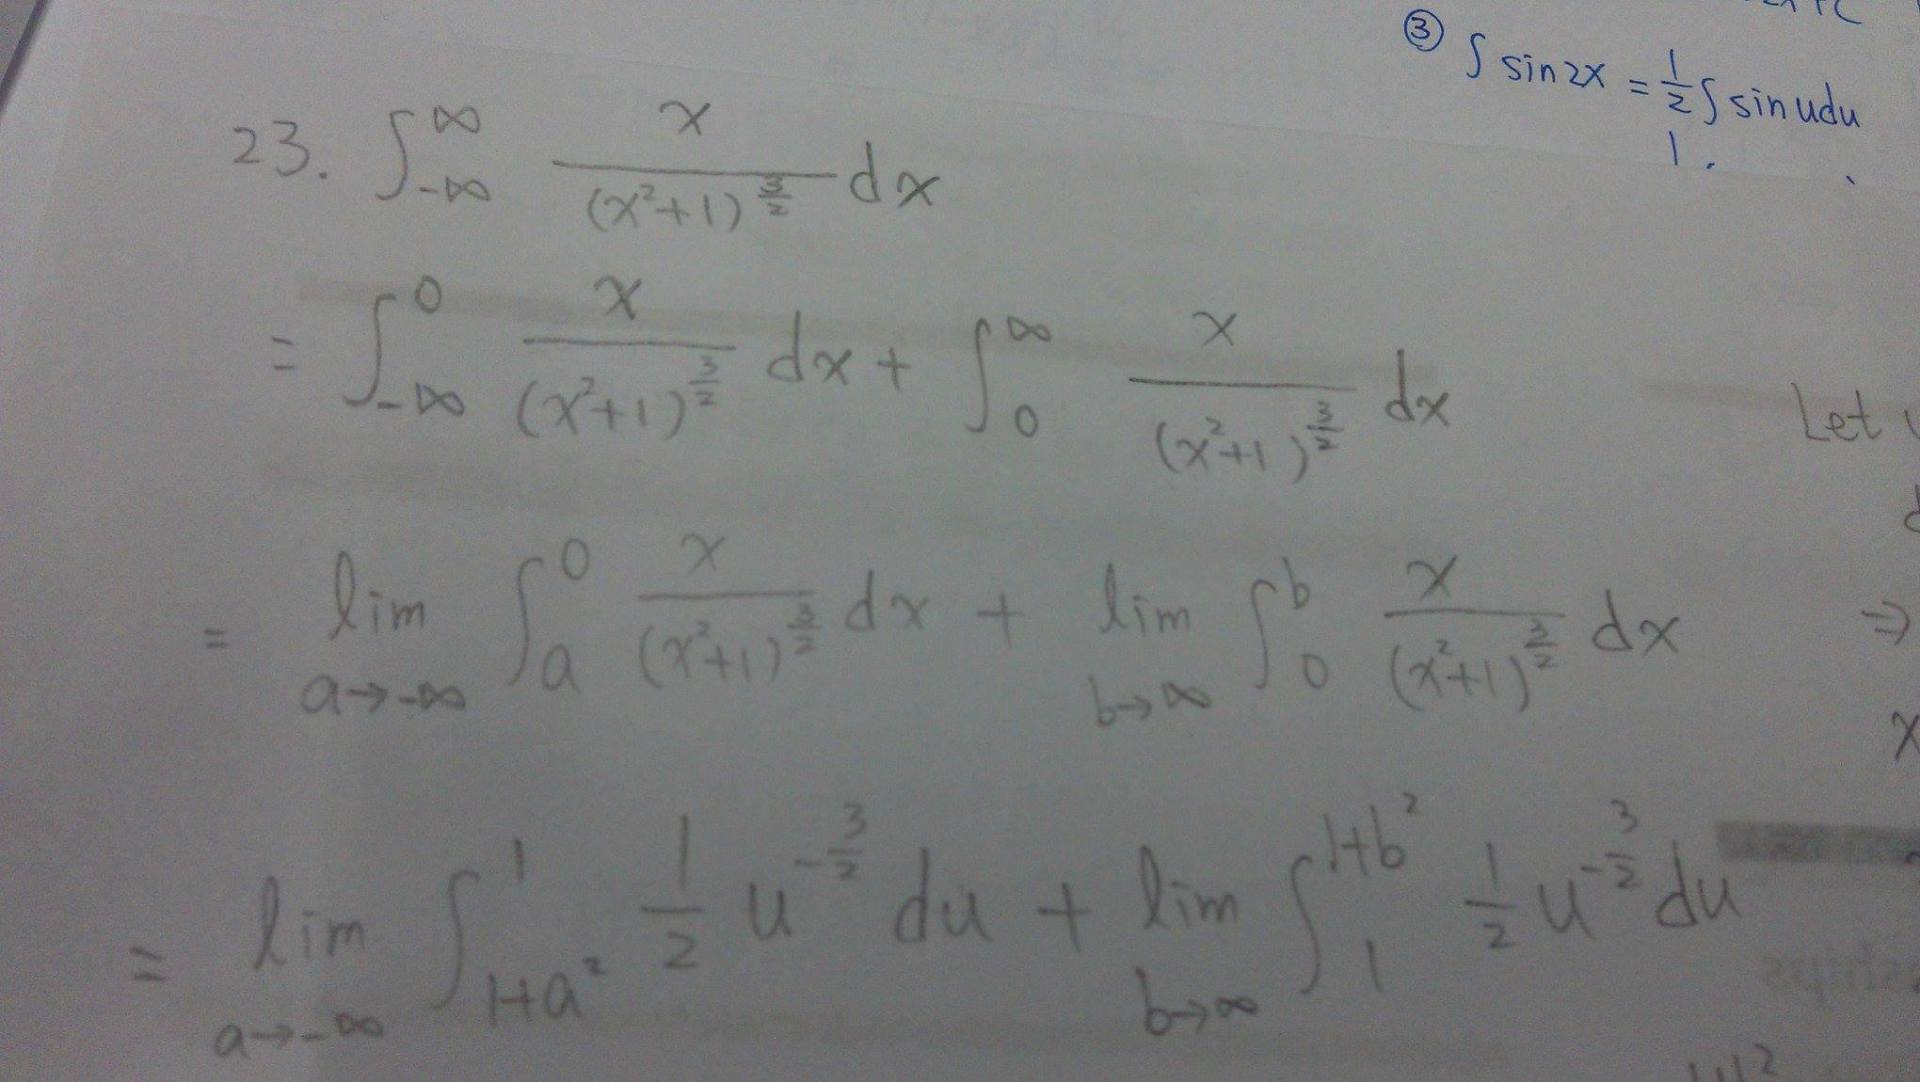 ③ ∫ sin 2x = 1/2 ∫ sin u du
23. ∫_{-∞}^{∞} x/(x²+1)^{3/2} dx
= ∫_{-∞}^{0} x/(x²+1)^{3/2} dx + ∫_{0}^{∞} x/(x²+1)^{3/2} dx
Let
= lim_{a→-∞} ∫_{a}^{0} x/(x²+1)^{3/2} dx + lim_{b→∞} ∫_{0}^{b} x/(x²+1)^{3/2} dx ⇒
x
= lim_{a→-∞} ∫_{1+a²}^{1} 1/2 u^{-3/2} du + lim_{b→∞} ∫_{1}^{1+b²} 1/2 u^{-3/2} du